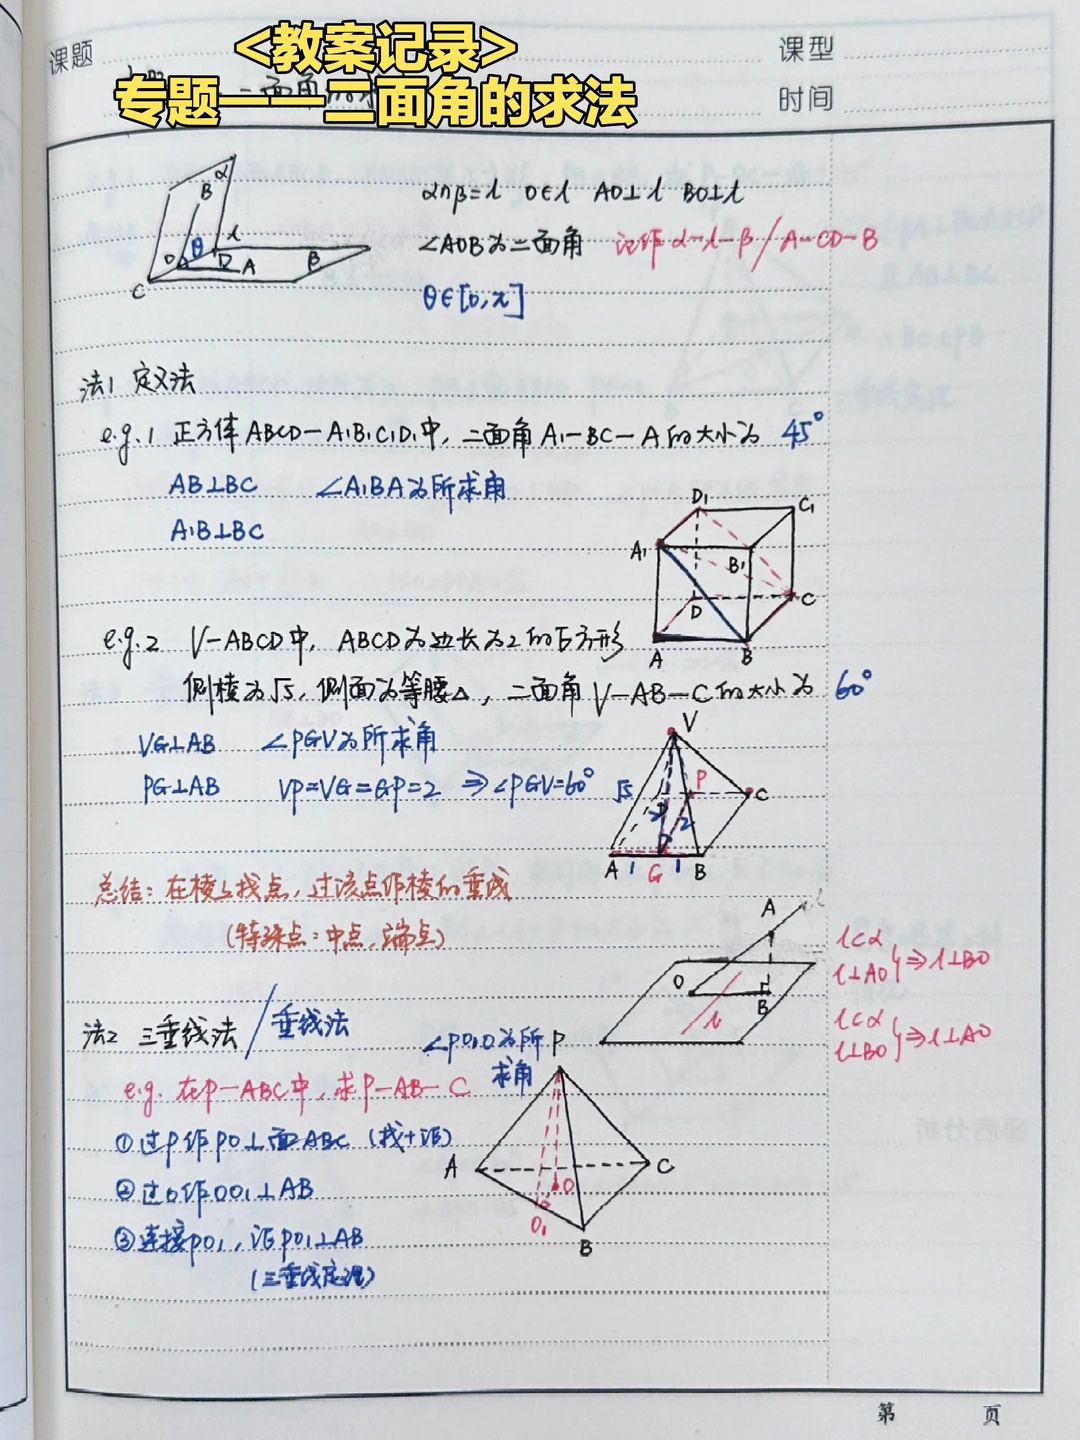 课题
<教案记录>
课型
专题——二面角的求法
时间
α∩β=l O∈l AO⊥l BO⊥l
∠AOB为二面角 记作 α-l-β / A-CD-B
θ∈[0,π]
B α
θ l
O D A β
C
法1 定义法
e.g.1 正方体ABCD-A1B1C1D1中,二面角A1-BC-A的大小为 45°
AB⊥BC ∠A1BA为所求角
A1B⊥BC
D1 C1
A1 B1
D C
A B
e.g.2 V-ABCD中,ABCD为边长为2的正方形
侧棱为√5,侧面为等腰△,二面角V-AB-C的大小为 60°
VG⊥AB ∠PGV为所求角
PG⊥AB VP=VG=GP=2 ⇒∠PGV=60°
V
√5 D P C
2 2
A 1 G 1 B
总结:在棱上找点,过该点作棱的垂线
(特殊点:中点,端点)
A
O B
l
l⊂α
l⊥AO }⇒l⊥BO
l⊂α
l⊥BO }⇒l⊥AO
法2 三垂线法/垂线法
∠PO1O为所求角
e.g. 在P-ABC中,求P-AB-C
①过P作PO⊥面ABC (找+证)
②过O作OO1⊥AB
③连接PO1,证PO1⊥AB
(三垂线定理)
P
A C
O
O1
B
课后分析
第 页